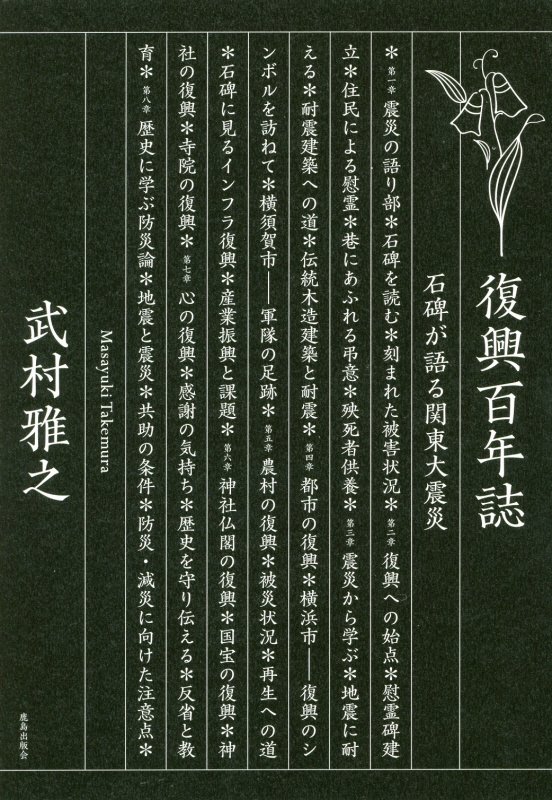 復興百年誌
石碑が語る関東大震災
＊第一章 震災の語り部＊石碑を読む＊刻まれた被害状況＊第二章 復興への始点＊慰霊碑建
立＊住民による慰霊＊巷にあふれる弔意＊殃死者供養＊第三章 震災から学ぶ＊地震に耐
える＊耐震建築への道＊伝統木造建築と耐震＊第四章 都市の復興＊横浜市──復興のシ
ンボルを訪ねて＊横須賀市──軍隊の足跡＊第五章 農村の復興＊被災状況＊再生への道
＊石碑に見るインフラ復興＊産業振興と課題＊第六章 神社仏閣の復興＊国宝の復興＊神
社の復興＊寺院の復興＊第七章 心の復興＊感謝の気持ち＊歴史を守り伝える＊反省と教
育＊第八章 歴史に学ぶ防災論＊地震と震災＊共助の条件＊防災・減災に向けた注意点＊
Masayuki Takemura
武村雅之
鹿島出版会